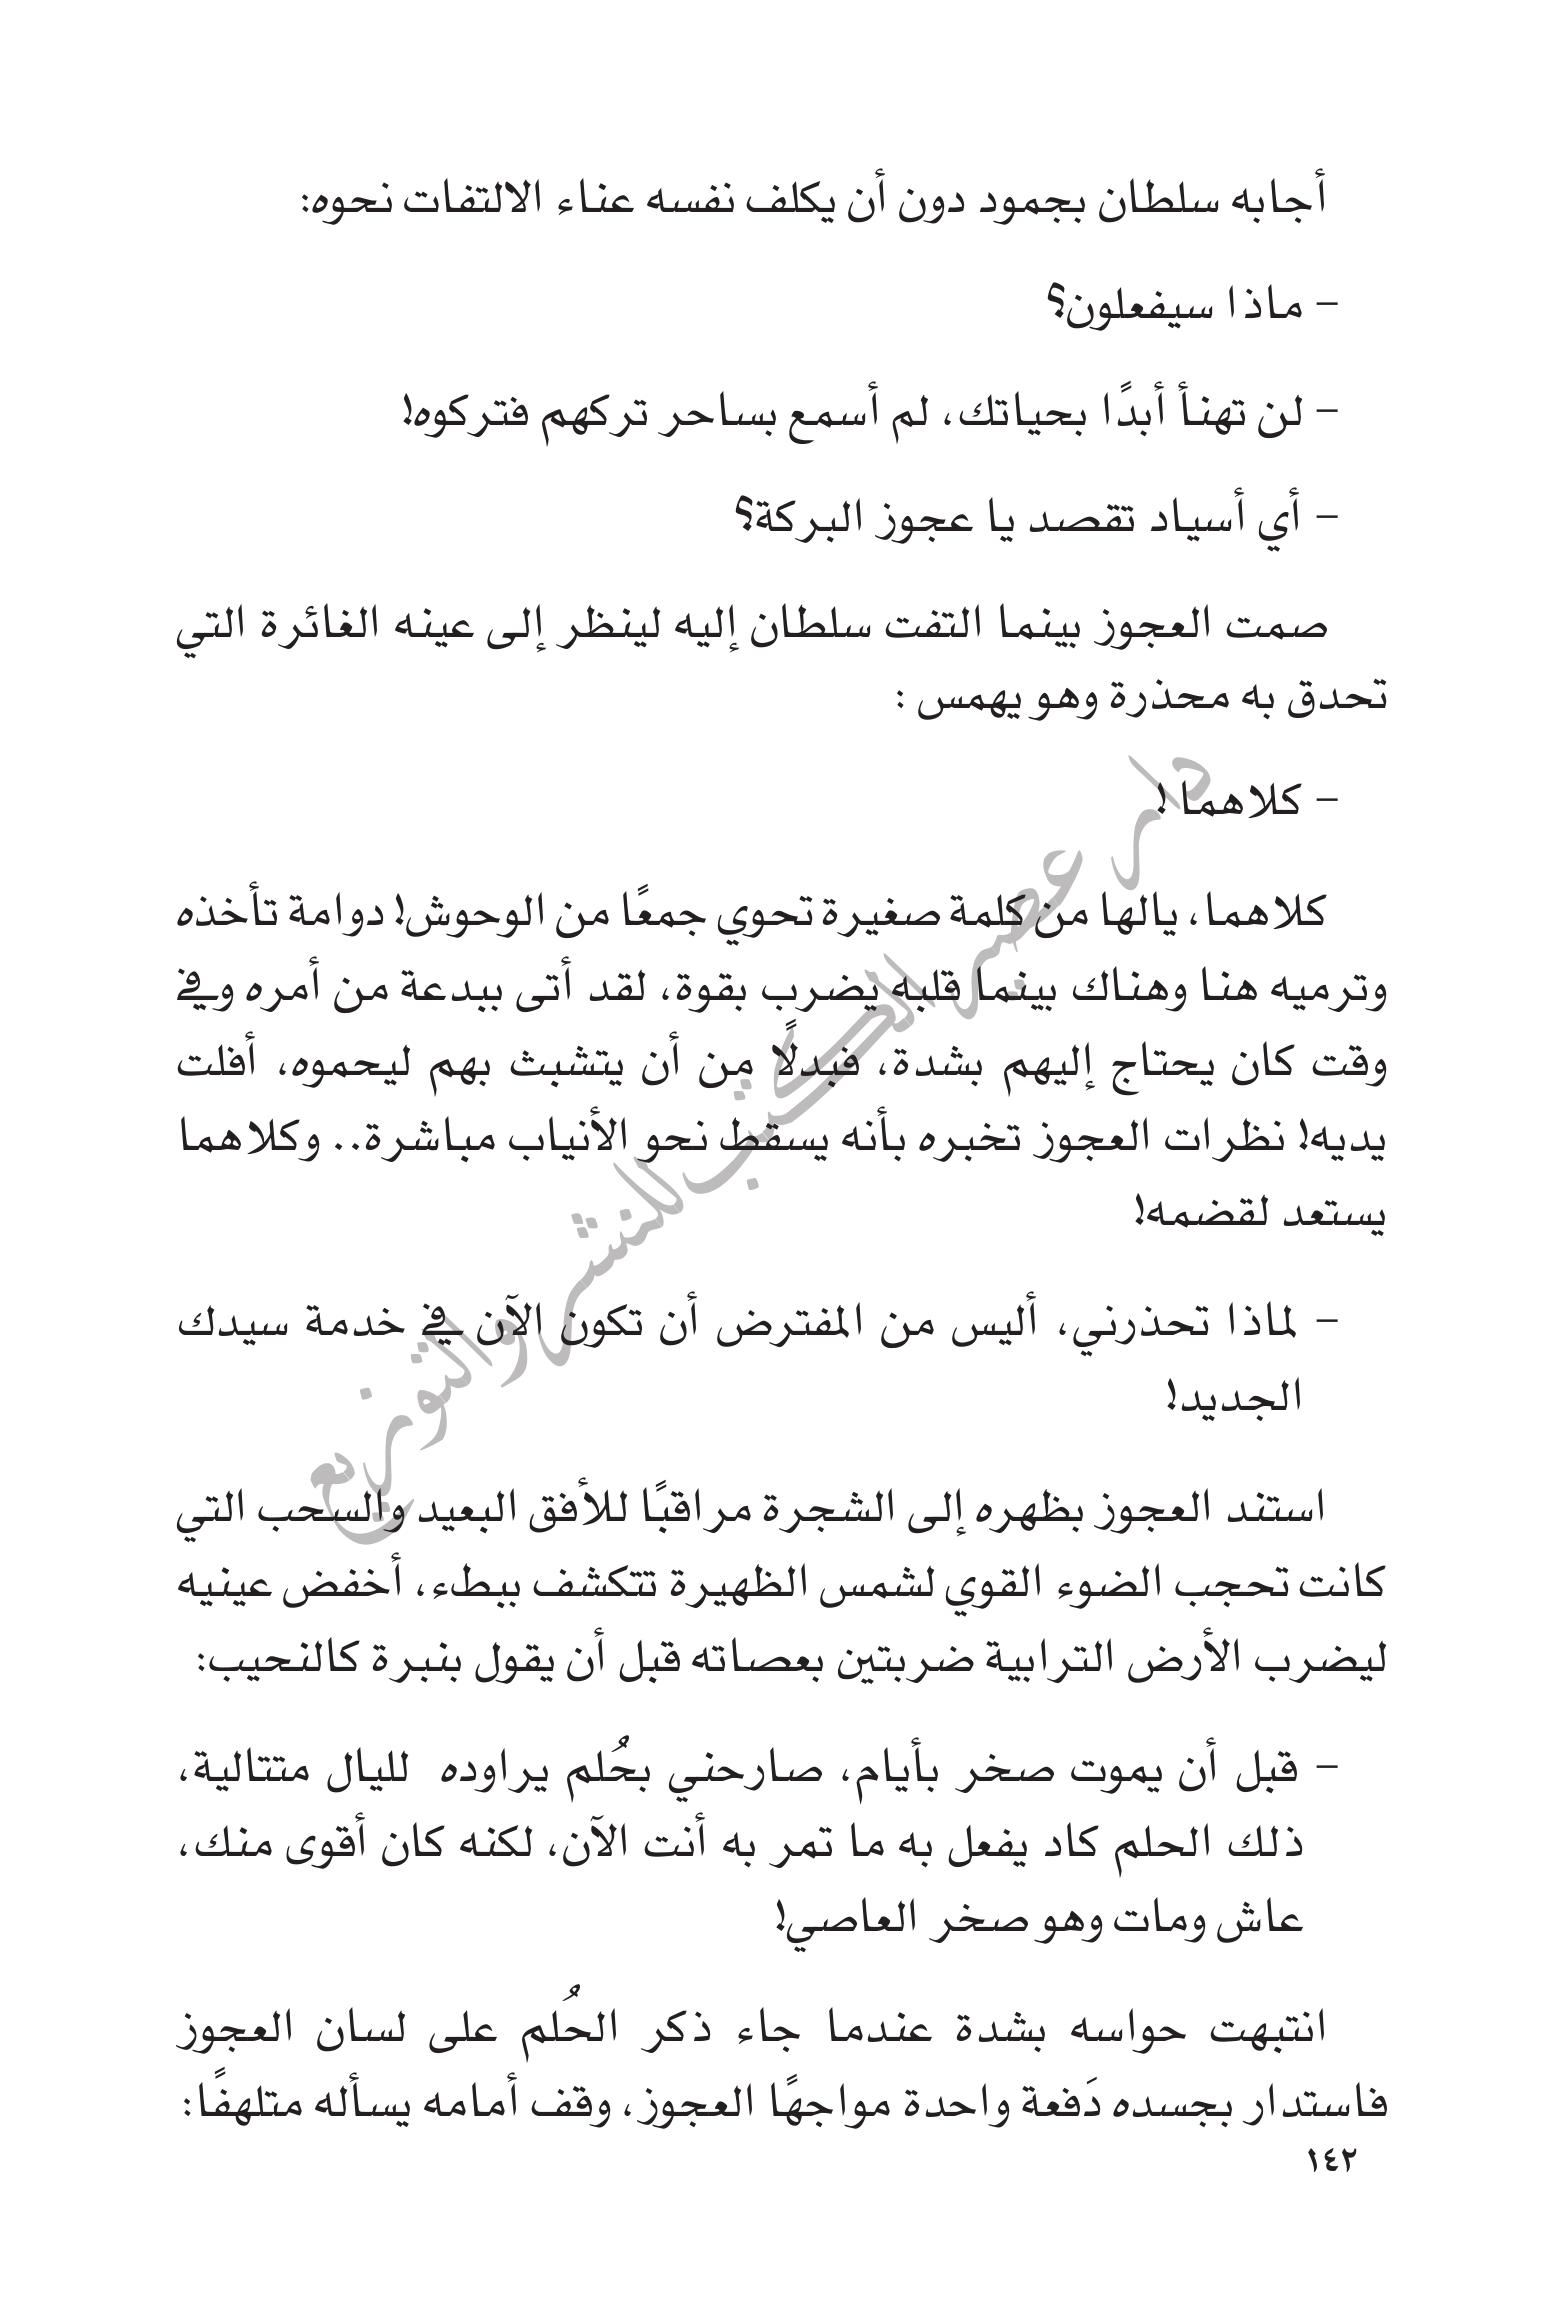 أجابه سلطان بجمود دون أن يكلف نفسه عناء الالتفات نحوه:
– ماذا سيفعلون؟
– لن تهنأ أبدًا بحياتك، لم أسمع بساحر تركهم فتركوه!
– أي أسياد تقصد يا عجوز البركة؟
صمت العجوز بينما التفت سلطان إليه لينظر إلى عينه الغائرة التي
تحدق به محذرة وهو يهمس :
– كلاهما !
كلاهما، يالها من كلمة صغيرة تحوي جمعًا من الوحوش! دوامة تأخذه
وترميه هنا وهناك بينما قلبه يضرب بقوة، لقد أتى ببدعة من أمره وفي
وقت كان يحتاج إليهم بشدة، فبدلًا من أن يتشبث بهم ليحموه، أفلت
يديه! نظرات العجوز تخبره بأنه يسقط نحو الأنياب مباشرة.. وكلاهما
يستعد لقضمه!
– لماذا تحذرني، أليس من المفترض أن تكون الآن في خدمة سيدك
الجديد!
استند العجوز بظهره إلى الشجرة مراقبًا للأفق البعيد والسحب التي
كانت تحجب الضوء القوي لشمس الظهيرة تتكشف ببطء، أخفض عينيه
ليضرب الأرض الترابية ضربتين بعصاته قبل أن يقول بنبرة كالنحيب:
– قبل أن يموت صخر بأيام، صارحني بحُلم يراوده لليال متتالية،
ذلك الحلم كاد يفعل به ما تمر به أنت الآن، لكنه كان أقوى منك،
عاش ومات وهو صخر العاصي!
انتبهت حواسه بشدة عندما جاء ذكر الحُلم على لسان العجوز
فاستدار بجسده دَفعة واحدة مواجهًا العجوز، وقف أمامه يسأله متلهفًا:
١٤٢
دار عصير الكتب للنشر والتوزيع